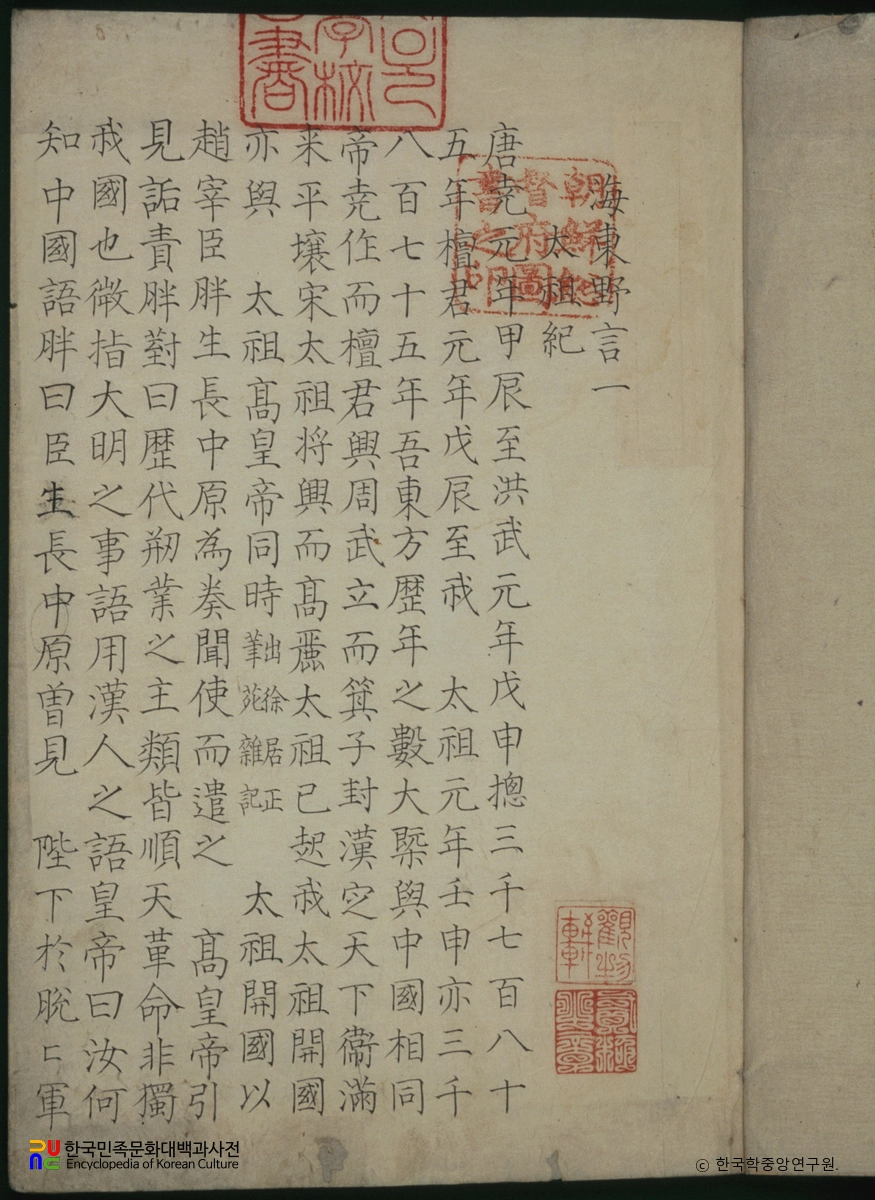 海東野言一
太祖紀
唐堯元年甲辰至洪武元年戊申摠三千七百八十
五年檀君元年戊辰至我 太祖元年壬申亦三千
八百七十五年吾東方歷年之數大槩與中國相同
帝堯作而檀君興周武立而箕子封漢定天下衛滿
来平壤宋太祖将興而髙麗太祖已起我太祖開國
亦與 太祖髙皇帝同時出徐居正筆苑雜記 太祖開國以
趙宰臣胖生長中原為奏聞使而遣之 髙皇帝引
見詬責胖對曰歷代刱業之主類皆順天革命非獨
我國也微指大明之事語用漢人之語皇帝曰汝何
知中國語胖曰臣生長中原曽見 陛下於脫〻軍
朝鮮總督府圖書之印
觀物軒
한국민족문화대백과사전
Encyclopedia of Korean Culture
ⓒ 한국학중앙연구원.